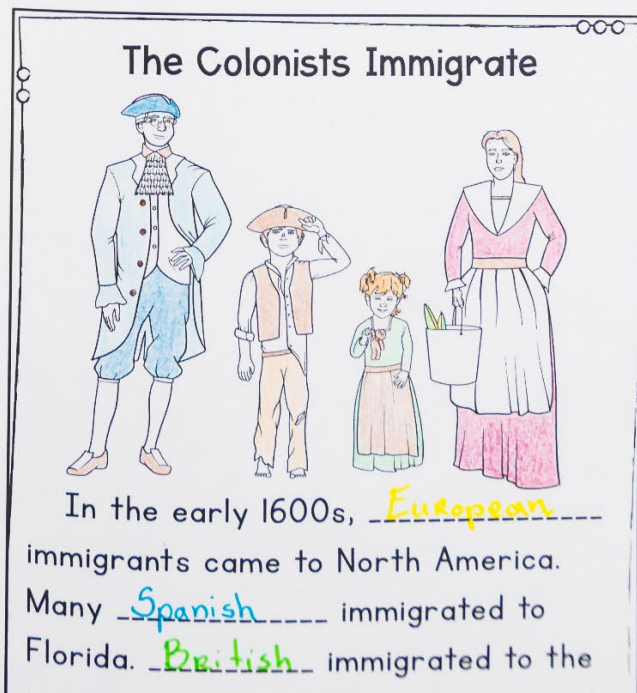 The Colonists Immigrate
In the early 1600s, European
immigrants came to North America.
Many Spanish immigrated to
Florida. British immigrated to the